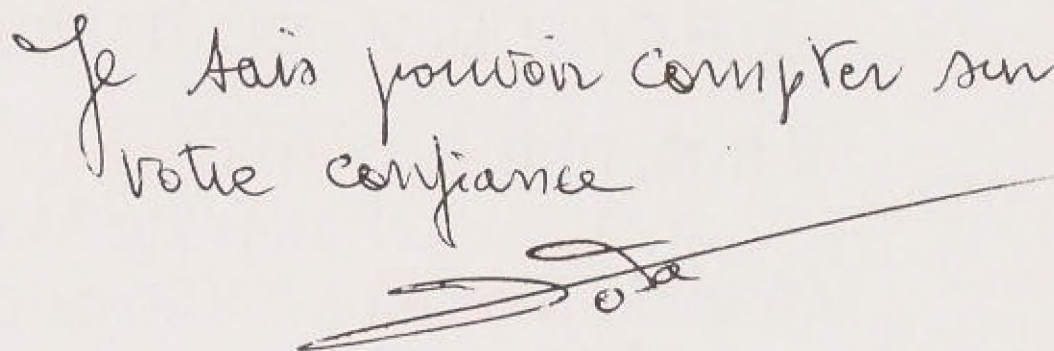 Je sais pouvoir compter sur
votre confiance